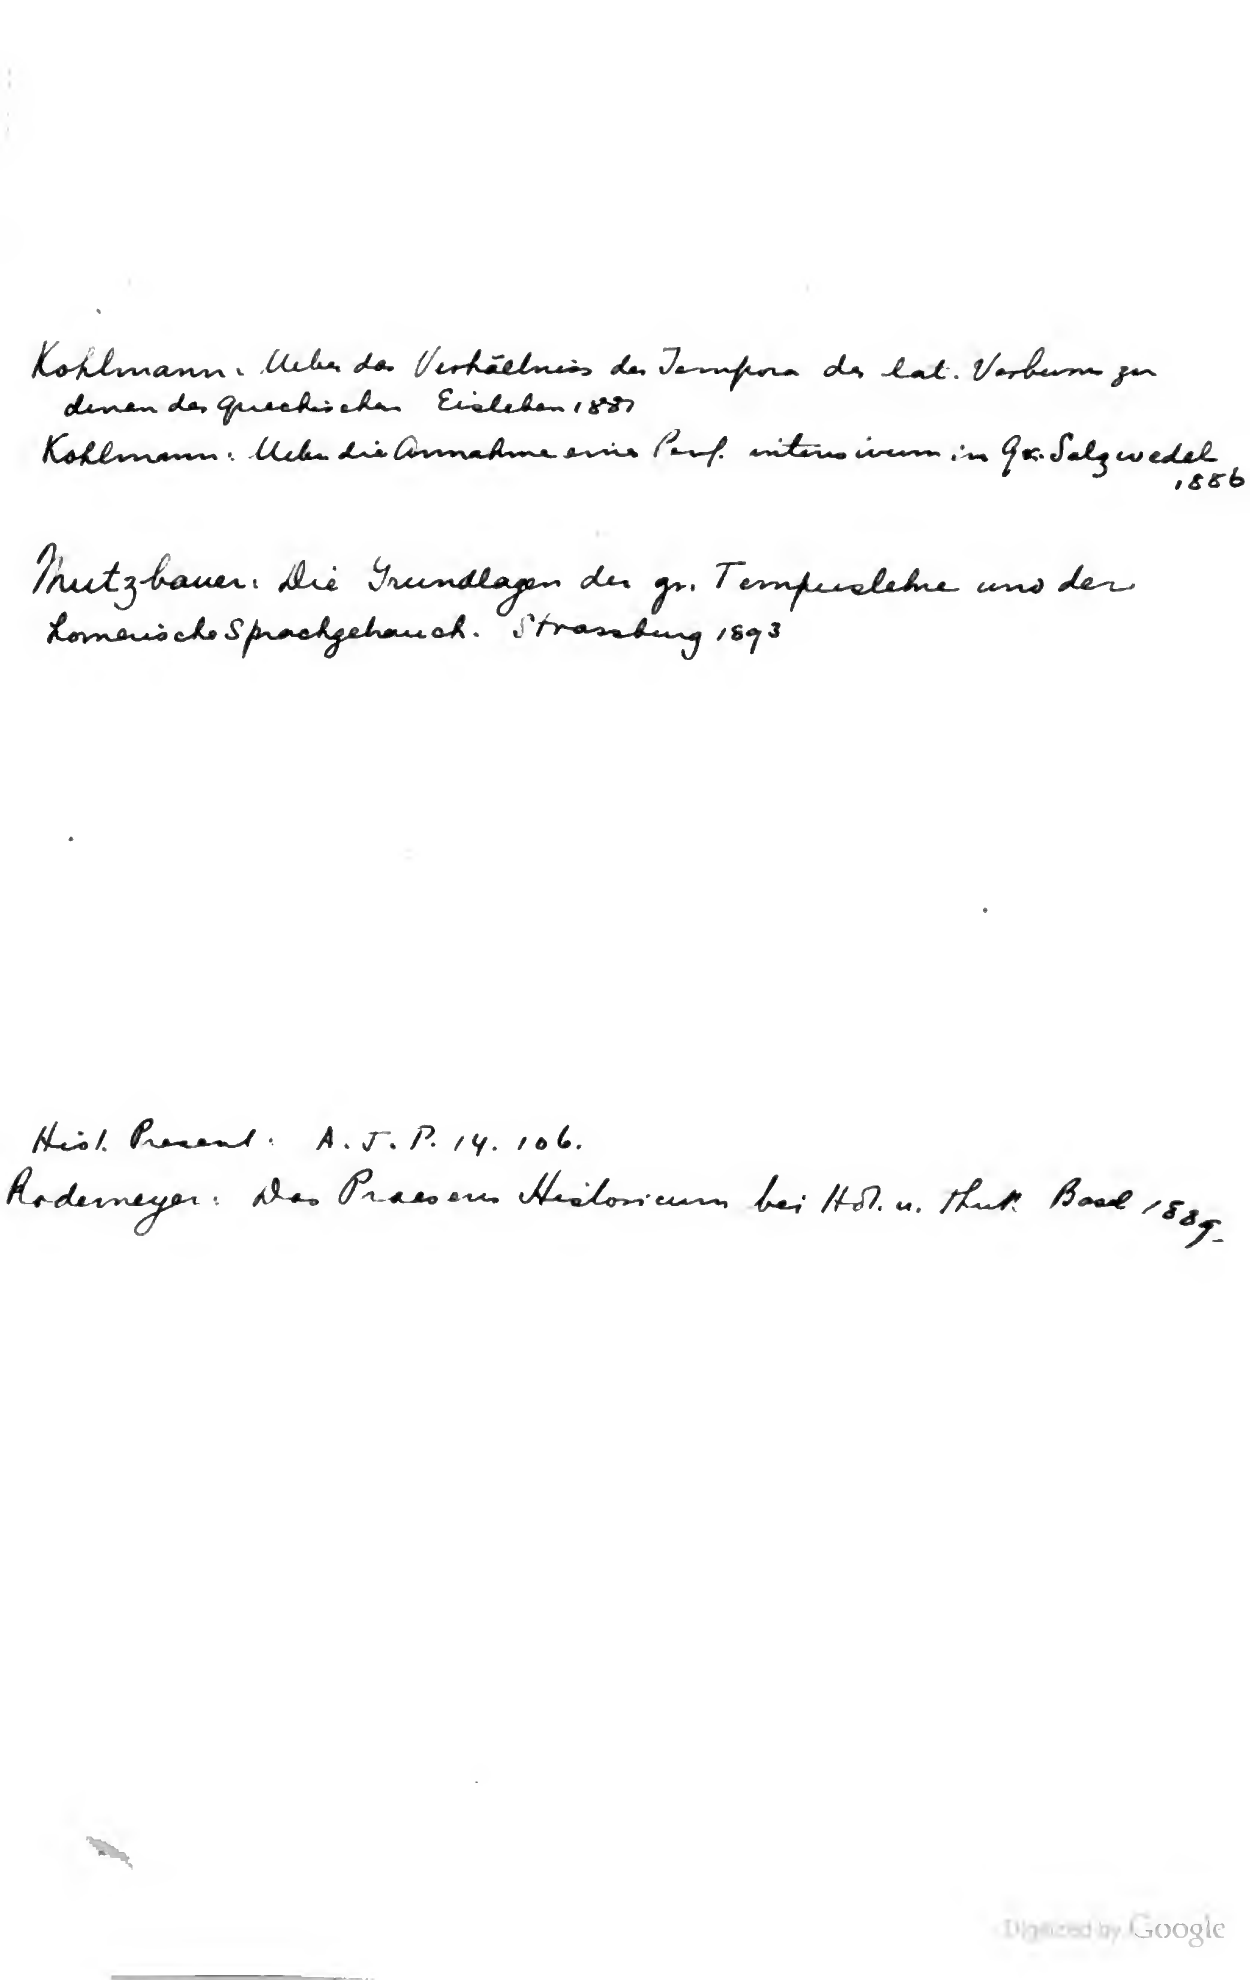 Kohlmann: Ueber das Verhältniss der Tempora des lat. Verbums zu
denen des griechischen Eisleben 1881
Kohlmann: Ueber die Annahme eines Perf. intensivum in Gk. Salzwedel
1886
Mutzbauer: Die Grundlagen der gr. Tempuslehre und der
homerische Sprachgebrauch. Strassburg 1893
Hist. Present: A. J. P. 14. 106.
Rodemeyer: Das Praesens Historicum bei Hdt. u. Thuk. Basel 1889
Digitized by Google